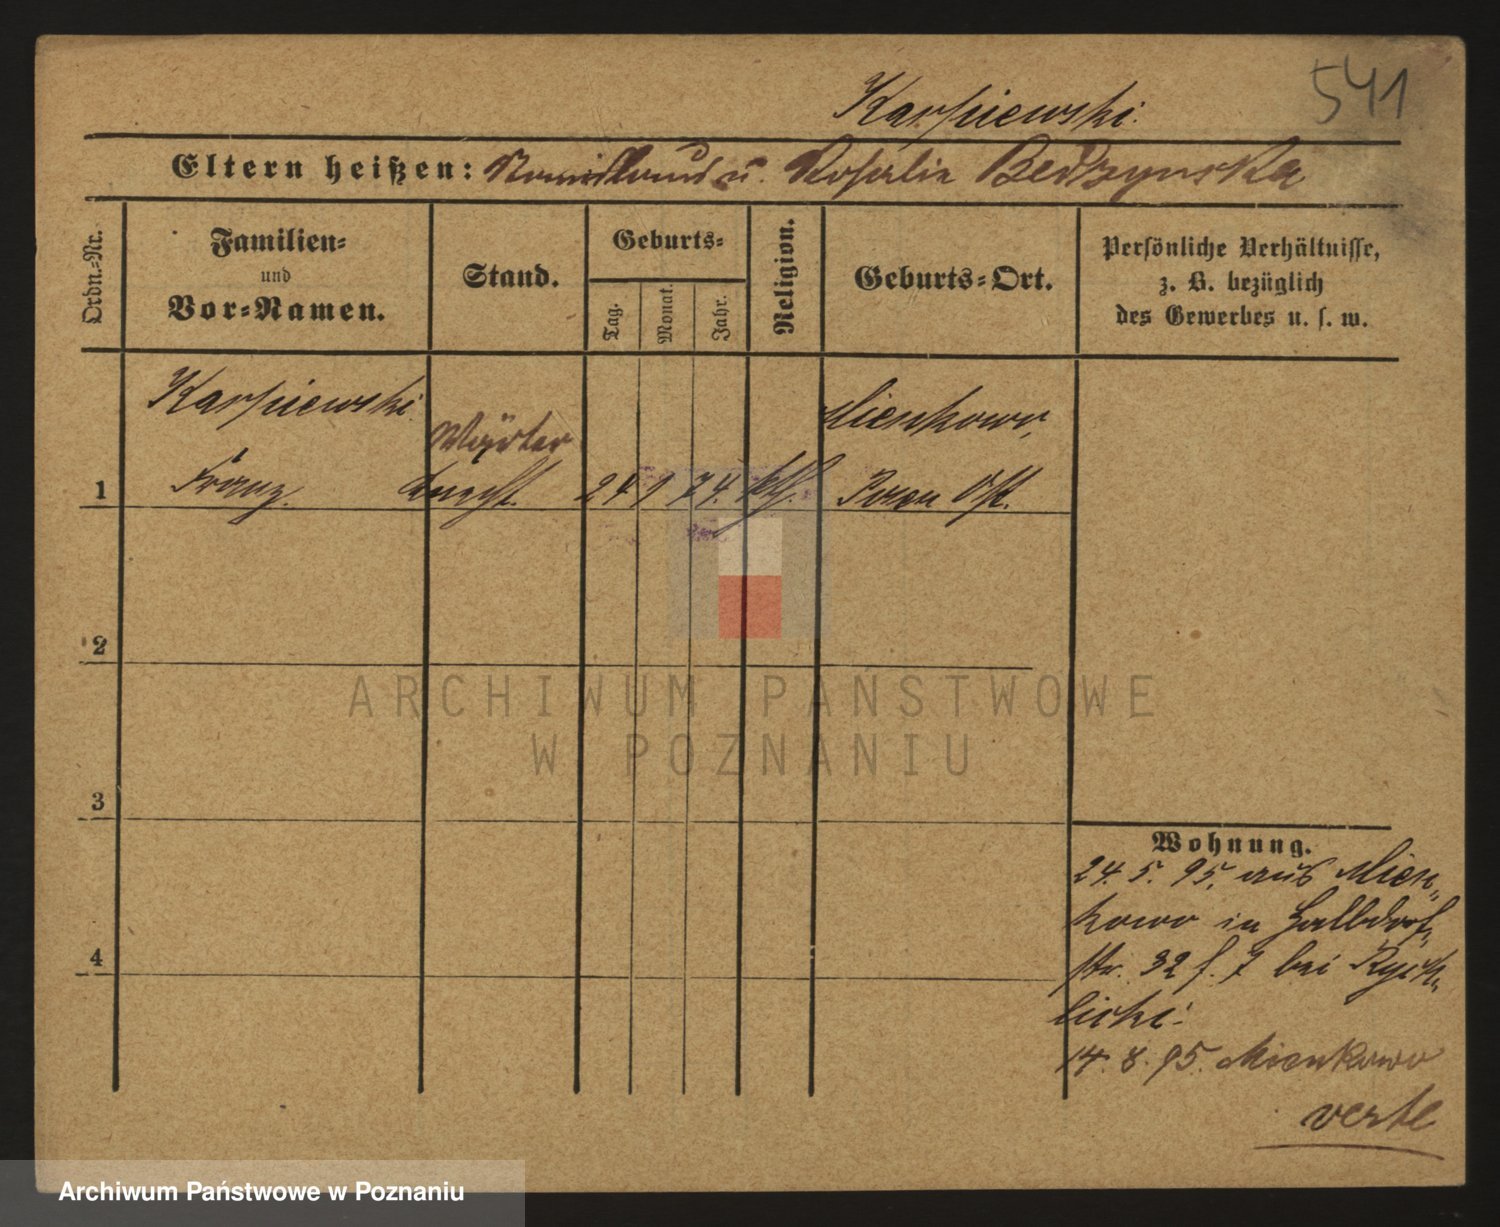 541
Karpiewski.
Eltern heißen: u. Rosalie Bedzynska
Ordn.-Nr.
Familien-
und
Vor-Namen.
Stand.
Geburts-
Tag.
Monat.
Jahr.
Religion.
Geburts-Ort.
Persönliche Verhältnisse,
z. B. bezüglich
des Gewerbes u. s. w.
Karpiewski
Wärter
Mienkowo,
1 Franz. Knecht. 24 1 74. kth. Posen Ost.
2
3
4
Wohnung.
24. 5. 95. aus Mien-
kowo in Halbdorf-
str. 32 f. 7 bei Rych-
licki.
14. 8. 95. Mienkowo
verte
ARCHIWUM PAŃSTWOWE
W POZNANIU
Archiwum Państwowe w Poznaniu